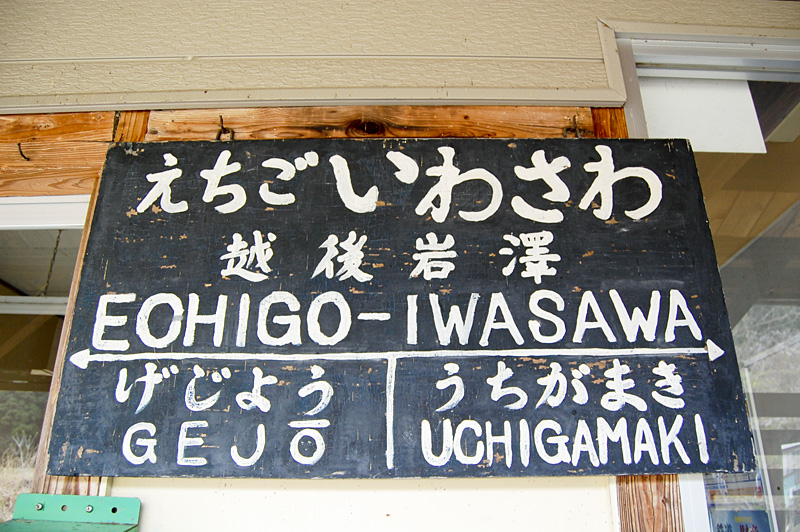 えちごいわさわ
越後岩澤
EOHIGO-IWASAWA
げじょう うちがまき
GEJŌ UCHIGAMAKI